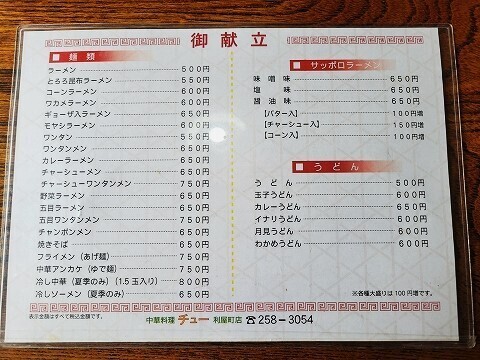 御献立
■麺類
ラーメン 500円
とろろ昆布ラーメン 550円
コーンラーメン 600円
ワカメラーメン 600円
ギョーザ入ラーメン 650円
モヤシラーメン 600円
ワンタン 550円
ワンタンメン 650円
カレーラーメン 650円
チャーシューメン 650円
チャーシューワンタンメン 750円
野菜ラーメン 650円
五目ラーメン 650円
五目ワンタンメン 750円
チャンポンメン 650円
焼きそば 650円
フライメン(あげ麺) 750円
中華アンカケ(ゆで麺) 750円
冷し中華(夏季のみ)(1.5玉入り) 800円
冷しソーメン(夏季のみ) 650円
■サッポロラーメン
味噌味 650円
塩味 650円
醤油味 650円
【バター入】 100円増
【チャーシュー入】 150円増
【コーン入】 100円増
■うどん
うどん 500円
玉子うどん 600円
カレーうどん 650円
イナリうどん 600円
月見うどん 600円
わかめうどん 600円
※各種大盛りは100円増です。
表示金額はすべて税込金額です。
中華料理 チュー 利屋町店 ☎258-3054